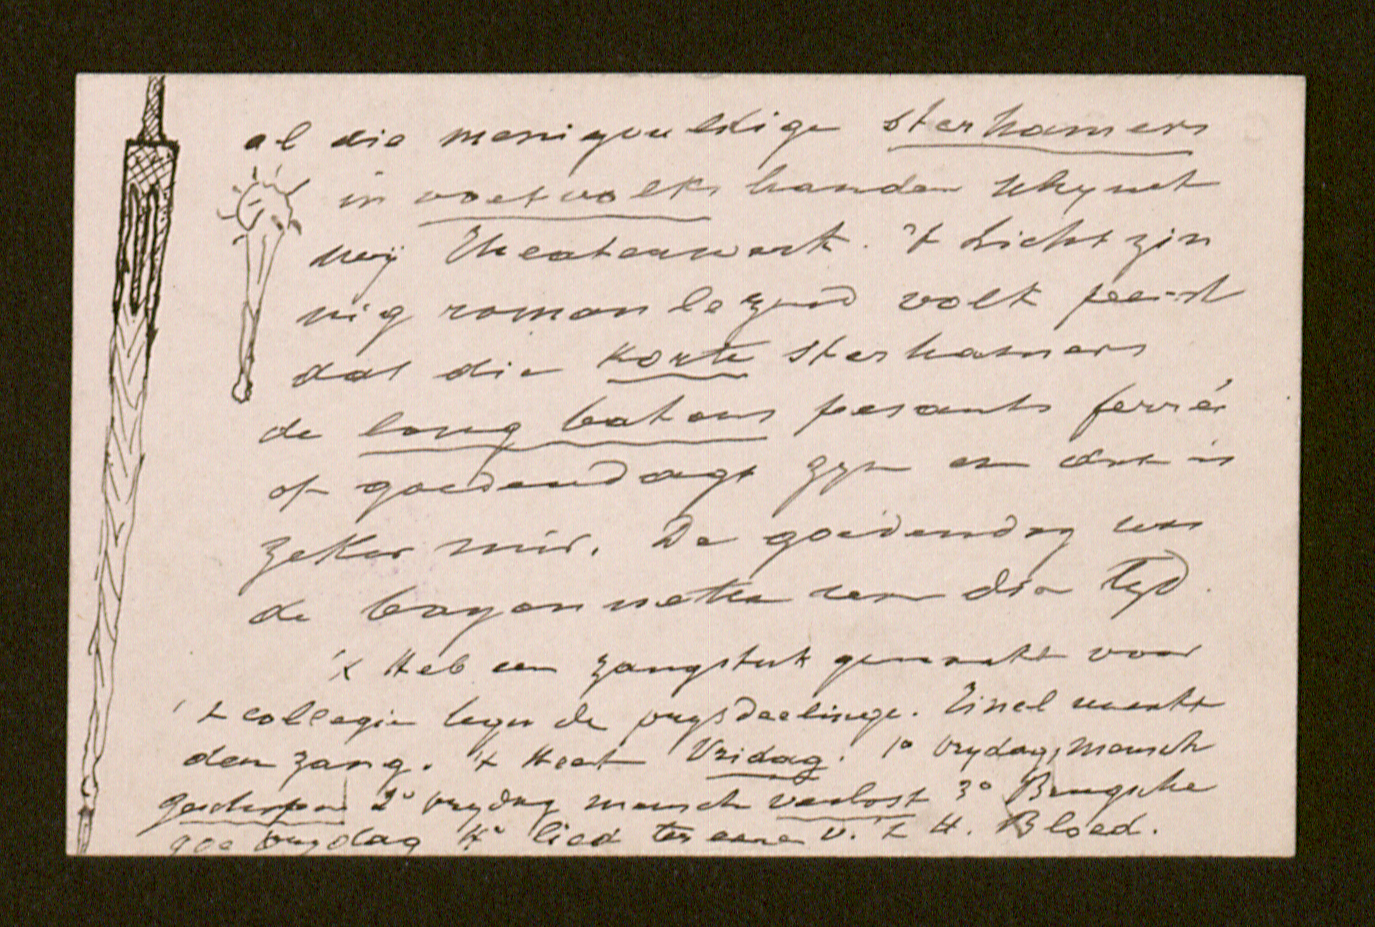 al die menigvuldige sterhamers
in voetvolks handen schynt
mij Theaterwerk. 't Lichtzin
nig romanlezend volk peist
dat die korte sterhamers
de long batons pesants ferrés
of goedendags zyn en dat is
zeker mis. De goedendag was
de bayonnette van dien tyd.
'k Heb een zangstuk gemaakt voor
't collegie tegen de prysdeelinge. Tinel maakt
den zang. 't Heet Vridag. 1° vrydag, mensch
geschapen 2° vrydag mensch verlost 3° Brugsche
goe vrydag 4° lied ter eeren v. 't H. Bloed.